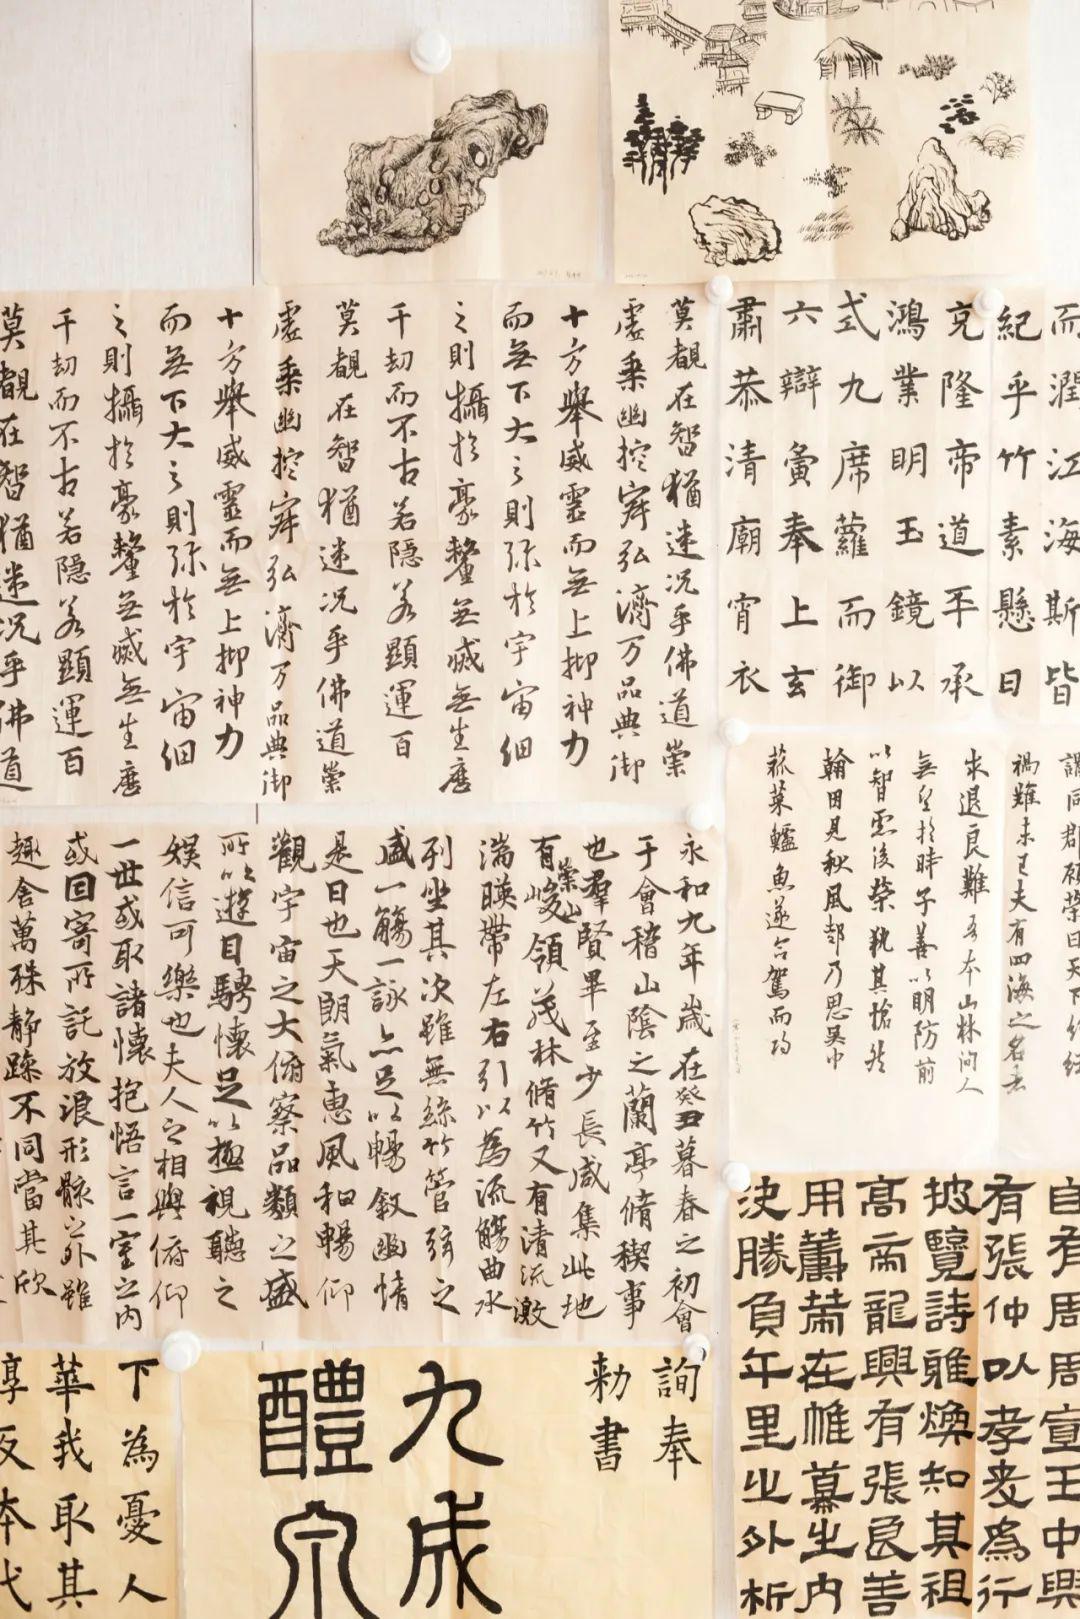 而潤江海斯皆
紀乎竹素懸日
克隆帝道丕承
鴻業明玉鏡以
式九席蘿而御
六辯寅奉上玄
肅恭清廟宵衣
莫覩在智猶迷況乎佛道崇
虛乘幽控寂弘濟万品典御
十方舉威靈而無上抑神力
而無下大之則弥於宇宙細
之則攝於豪釐無滅無生歷
千劫而不古若隱若顯運百
莫覩在智猶迷況乎佛道崇
虛乘幽控寂弘濟万品典御
十方舉威靈而無上抑神力
而無下大之則弥於宇宙細
之則攝於豪釐無滅無生歷
千劫而不古若隱若顯運百
莫覩在智猶迷況乎佛道
謂同郡顧榮曰天下紛紜
禍難未已夫有四海之名者
求退良難吾本山林間人
無望於時子善以明防前
以智慮後榮執其愴然
翰因見秋風起乃思吴中
菰菜鱸魚遂命駕而歸
永和九年歲在癸丑暮春之初會
于會稽山陰之蘭亭脩稧事
也羣賢畢至少長咸集此地
有崇山峻領茂林脩竹又有清流激
湍暎帶左右引以為流觴曲水
列坐其次雖無絲竹管弦之
盛一觴一詠亦足以暢敘幽情
是日也天朗氣惠風和暢仰
觀宇宙之大俯察品類之盛
所以遊目騁懷足以極視聽之
娛信可樂也夫人之相與俯仰
一世或取諸懷抱悟言一室之內
或因寄所託放浪形骸之外雖
趣舍萬殊静躁不同當其欣
自有周周宣王中興
有張仲以孝友爲行
披覽詩雅煥知其祖
高帝龍興有張良善
用籌策在帷幕之內
決勝負千里之外析
詢奉
勅書
九成
醴泉
下為憂人
華我取其
淳反本代